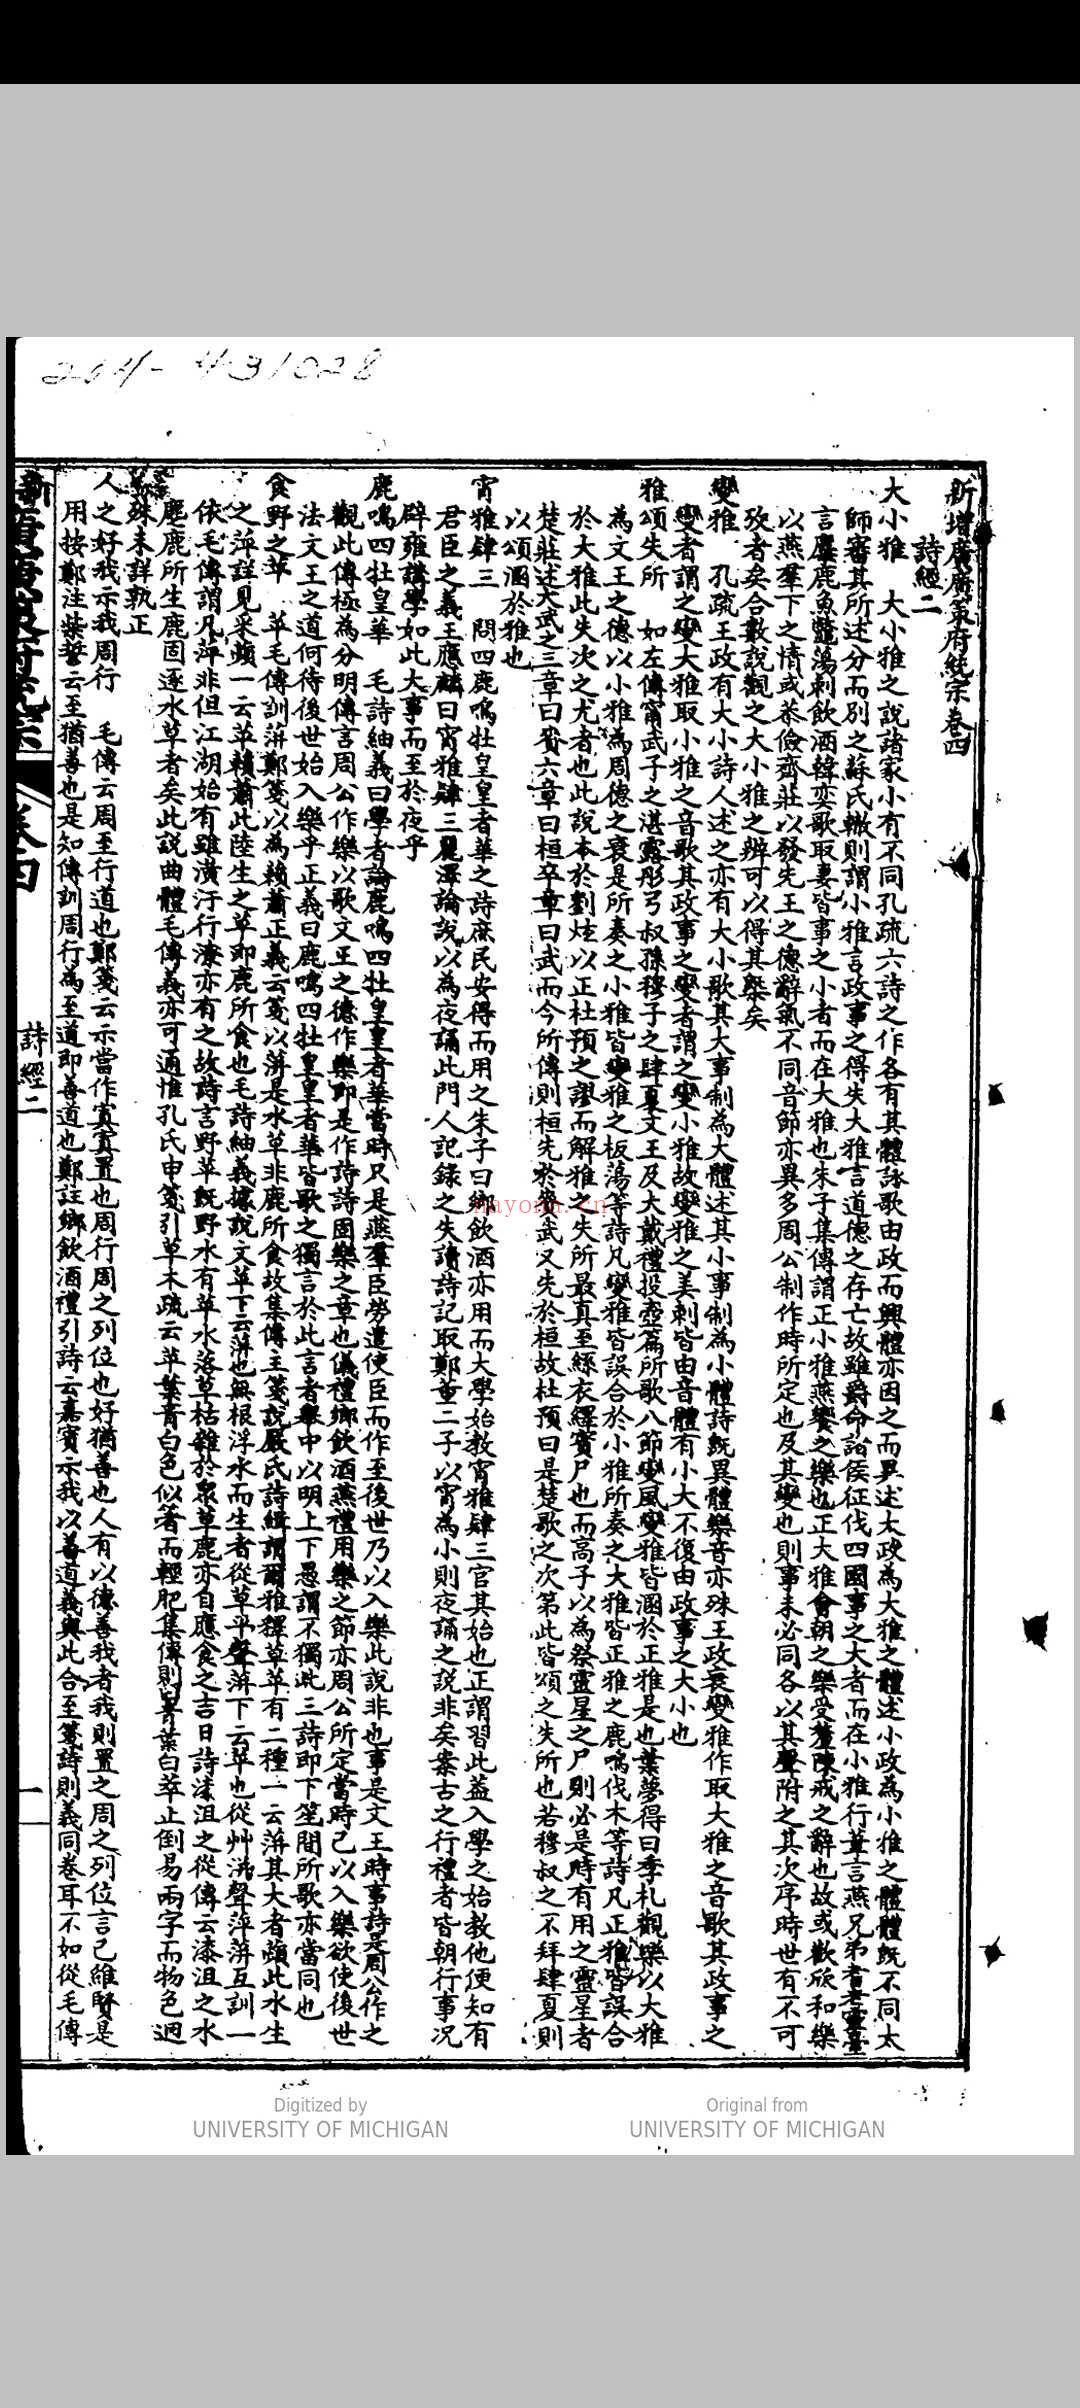 新增廣廣策府統宗卷四
詩經二
大小雅　大小雅之說諸家小有不同孔疏六詩之作各有其體詠歌由政而興體亦因之而異述大政為大雅之體述小政為小雅之體體既不同太
師審其所述分而別之蘇氏轍則謂小雅言政事之得失大雅言道德之存亡故雖爵命諸侯征伐四國事之大者而在小雅行葦言燕兄弟耆老靈臺
言麀鹿魚鼈蕩刺飲酒韓奕歌取妻皆事之小者而在大雅也朱子集傳謂正小雅燕饗之樂也正大雅會朝之樂受釐陳戒之辭也故或歡欣和樂
以燕羣下之情或恭儉齊莊以發先王之德辭氣不同音節亦異多周公制作時所定也及其變也則事未必同各以其聲附之其次序時世有不可
攷者矣合數說觀之大小雅之辨可以得其槩矣
變雅　孔疏王政有大小詩人述之亦有大小歌其大事制為大體述其小事制為小體詩既異體樂音亦殊王政衰變雅作取大雅之音歌其政事之
變者謂之變大雅取小雅之音歌其政事之變者謂之變小雅故變雅之美刺皆由音體有小大不復由政事之大小也
雅頌失所　如左傳甯武子之湛露彤弓叔孫穆子之肆夏文王及大戴禮投壺篇所歌八節變風變雅皆溷於正雅是也葉夢得曰季札觀樂以大雅
為文王之德以小雅為周德之衰是所奏之小雅皆變雅之板蕩等詩凡變雅皆誤合於小雅所奏之大雅皆正雅之鹿鳴伐木等詩凡正雅皆誤合
於大雅此失次之尤者也此說本於劉炫以正杜預之謬而解雅之失所最真至絲衣繹賓尸也而高子以為祭靈星之尸則必是時有用之靈星者
楚莊述大武之三章曰賚六章曰桓卒章曰武而今所傳則桓先於賚武又先於桓故杜預曰是楚歌之次第此皆頌之失所也若穆叔之不拜肆夏則
以頌溷於雅也
宵雅肄三　問四鹿鳴牡皇皇者華之詩庶民安得而用之朱子曰鄉飲酒亦用而大學始教宵雅肄三官其始也正謂習此葢入學之始教他便知有
君臣之義王應麟曰宵雅肄三麗澤論說以為夜誦此門人記錄之失讀詩記取鄭董二子以宵為小則夜誦之說非矣案古之行禮者皆朝行事況
辟雍講學如此大事而至於夜乎
鹿鳴四牡皇華　毛詩紬義曰學者論鹿鳴四牡皇皇者華當時只是燕羣臣勞遣使臣而作至後世乃以入樂此說非也事是文王時事詩是周公作之
觀此傳極為分明傳言周公作樂以歌文王之德作樂即是作詩詩固樂之章也儀禮鄉飲酒燕禮用樂之節亦周公所定當時已以入樂欲使後世
法文王之道何待後世始入樂乎正義曰鹿鳴四牡皇皇者華皆歌之獨言於此言者舉中以明上下愚謂不獨此三詩即下笙間所歌亦當同也
食野之苹　苹毛傳訓蓱鄭箋以為藾蕭正義云箋以蓱是水草非鹿所食故集傳主箋說嚴氏詩緝謂爾雅釋草苹有二種一云蓱其大者蘋此水生
之萍詳見采蘋一云苹藾蕭此陸生之草即鹿所食也毛詩紬義據說文苹下云蓱也無根浮水而生者從草平聲蓱下云苹也從艸洴聲萍蓱互訓一
依毛傳謂凡萍非但江湖始有雖潢汙行潦亦有之故詩言野苹既野水有苹水落草枯雜於眾草鹿亦自應食之吉日詩漆沮之從傳云漆沮之水
麀鹿所生鹿固逐水草者矣此說曲體毛傳義亦可通惟孔氏申箋引草木疏云苹葉青白色似箸而輕肥集傳則青葉白莖止倒易兩字而物色迥
殊未詳孰正
人之好我示我周行　毛傳云周至行道也鄭箋云示當作寘寘置也周行周之列位也好猶善也人有以德善我者我則置之周之列位言己維賢是
用按鄭注柴誓云至猶善也是知傳訓周行為至道即善道也鄭註鄉飲酒禮引詩云嘉賓示我以善道義與此合至箋詩則義同卷耳不如從毛傳
卷四
詩經二
一
nayona.cn
Digitized by
UNIVERSITY OF MICHIGAN
Original from
UNIVERSITY OF MICHIGAN